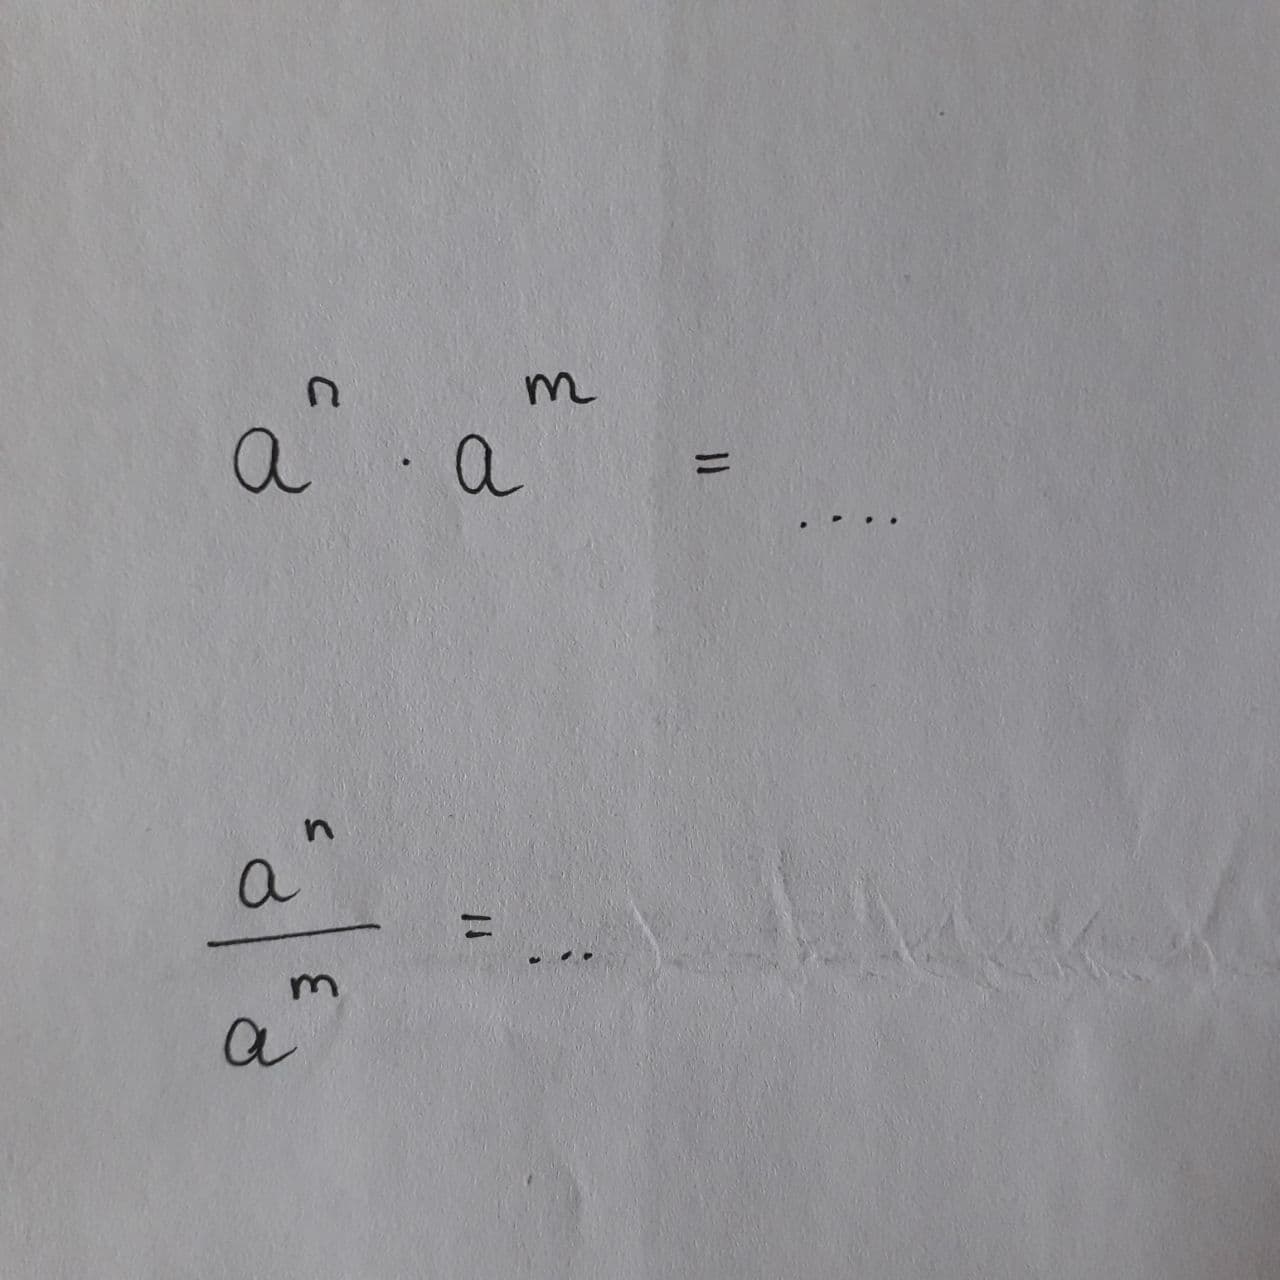 aⁿ · aᵐ = ....
aⁿ/aᵐ = ...